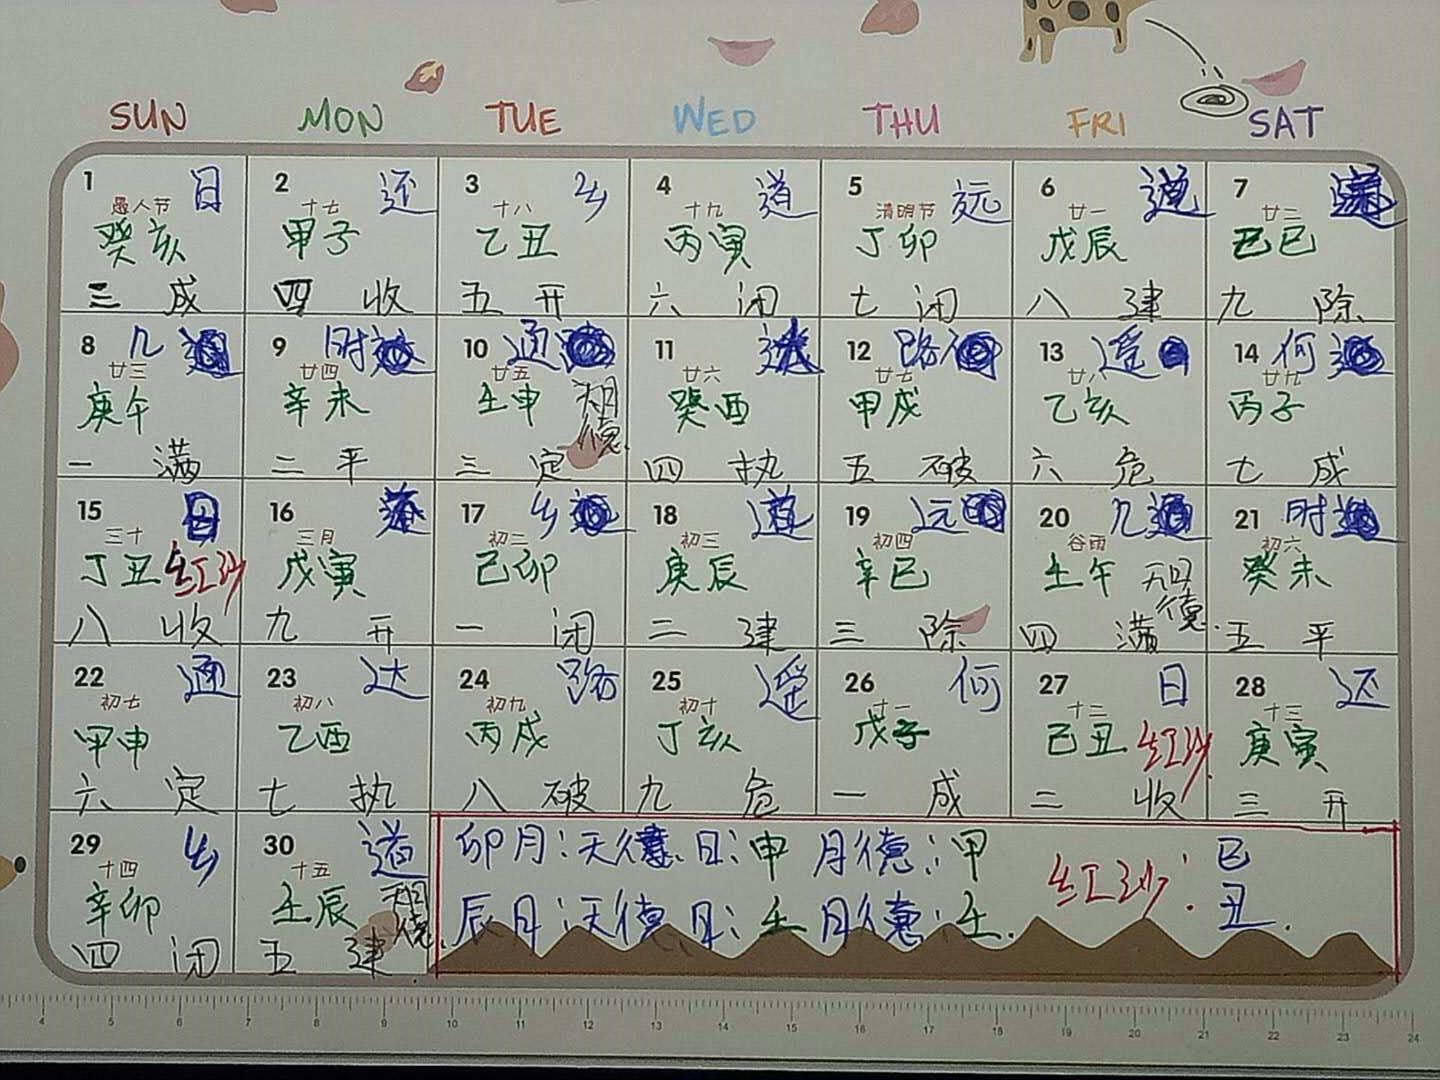 SUN MON TUE WED THU FRI SAT
1 日
愚人节
癸亥
三 成
2 还
十七
甲子
四 收
3 乡
十八
乙丑
五 开
4 道
十九
丙寅
六 闭
5 远
清明节
丁卯
七 闭
6
廿一
戊辰
八 建
7
廿二
己巳
九 除
8 几
廿三
庚午
一 满
9 时
廿四
辛未
二 平
10 通
廿五
壬申
德
三 定
11
廿六
癸酉
四 执
12 路
廿七
甲戌
五 破
13 遥
廿八
乙亥
六 危
14 何
廿九
丙子
七 成
15 日
三十
丁丑 红沙
八 收
16
三月
戊寅
九 开
17 乡
初二
己卯
一 闭
18 道
初三
庚辰
二 建
19 远
初四
辛巳
三 除
20 几
谷雨
壬午
德
四 满
21 时
初六
癸未
五 平
22 通
初七
甲申
六 定
23 达
初八
乙酉
七 执
24 路
初九
丙戌
八 破
25 遥
初十
丁亥
九 危
26 何
十一
戊子
一 成
27 日
十二
己丑 红沙
二 收
28 还
十三
庚寅
三 开
29 乡
十四
辛卯
四 闭
30 道
十五
壬辰
德
五 建
卯月:天德日:申 月德:甲
辰月:天德日:壬 月德:壬.
红沙: 巳
丑.
4 5 6 7 8 9 10 11 12 13 14 15 16 17 18 19 20 21 22 23 24